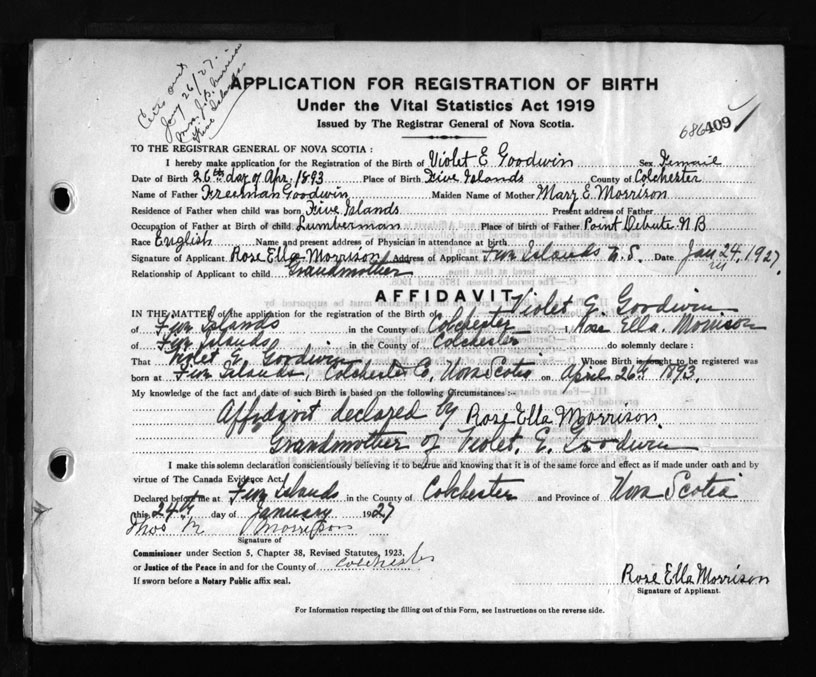 Certs out
Jany 26/27.
Mrs. J. B. Morrison
Five Islands
APPLICATION FOR REGISTRATION OF BIRTH
Under the Vital Statistics Act 1919
Issued by The Registrar General of Nova Scotia.
686409
TO THE REGISTRAR GENERAL OF NOVA SCOTIA:
I hereby make application for the Registration of the Birth of Violet E Goodwin Sex Female
Date of Birth 26th day of Apr. 1893 Place of Birth Five Islands County of Colchester
Name of Father Freeman Goodwin Maiden Name of Mother Mary E. Morrison
Residence of Father when child was born Five Islands Present address of Father
Occupation of Father at Birth of child Lumberman Place of birth of Father Point Debute N B
Race English Name and present address of Physician in attendance at birth
Signature of Applicant Rose Ella Morrison Address of Applicant Five Islands N.S. Date Jan 24, 1927,
Relationship of Applicant to child Grandmother
AFFIDAVIT
IN THE MATTER of the application for the registration of the Birth of Violet E. Goodwin
of Five Islands in the County of Colchester I, Rose Ella. Morrison
of Five Islands in the County of Colchester do solemnly declare:
That Violet E. Goodwin Whose Birth is sought to be registered was
born at Five Islands, Colchester Co, Nova Scotia on April 26th 1893.
My knowledge of the fact and date of such Birth is based on the following Circumstances:-
Affidavit declared by Rose Ella Morrison
Grandmother of Violet. E. Goodwin
I make this solemn declaration conscientiously believing it to be true and knowing that it is of the same force and effect as if made under oath and by
virtue of The Canada Evidence Act.
Declared before me at Five Islands in the County of Colchester and Province of Nova Scotia
this 24th day of January 1927
Thos R Morrison
Signature of
Commissioner under Section 5, Chapter 38, Revised Statutes, 1923.
or Justice of the Peace in and for the County of Colchester
If sworn before a Notary Public affix seal.
Rose Ella Morrison
Signature of Applicant.
For Information respecting the filling out of this Form, see Instructions on the reverse side.